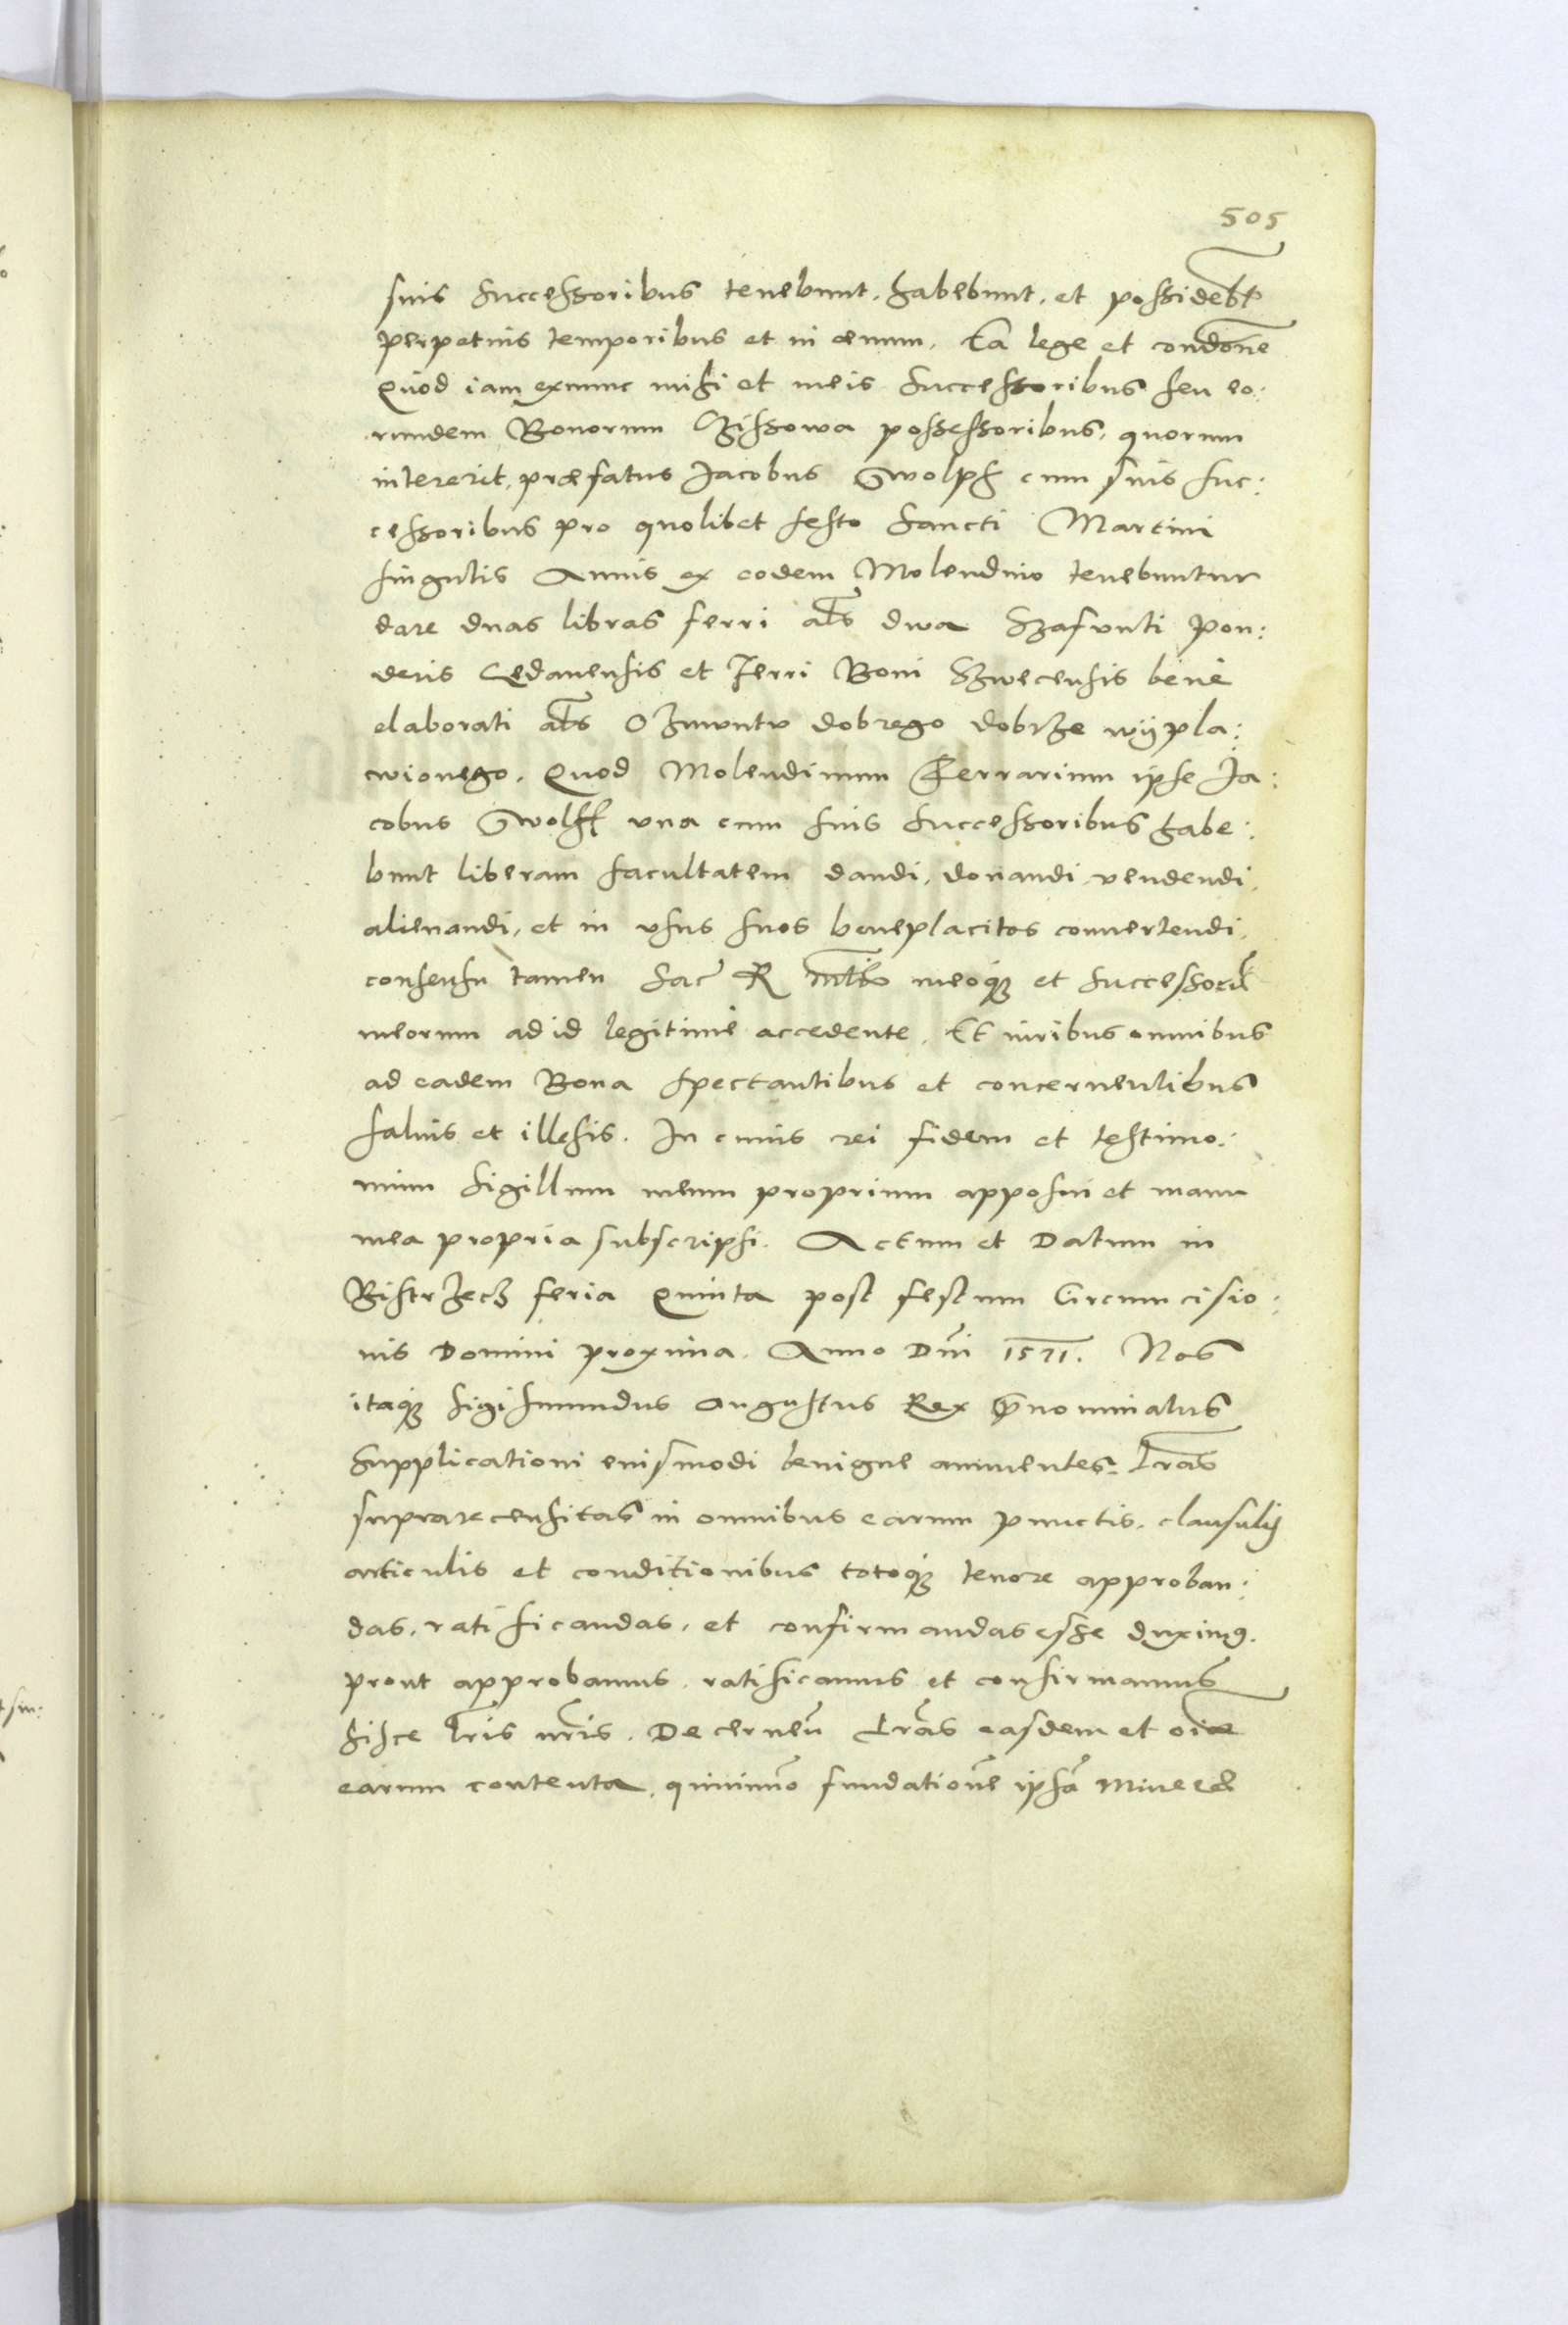 505
suis successoribus tenebunt, habebunt, et possidebt
perpetuis temporibus et in aeuum. Ea lege et condone
Quod iam exnunc mihi et meis successoribus seu eo:
rundem Bonorum Czissowa possessoribus, quorum
intererit, praefatus Jacobus Gwolph cum suis suc:
cessoribus pro quolibet festo Sancti Martini
singulis Annis ex eodem Molendino tenebuntur
dare duas libras ferri als dwa Szafunti pon:
deris Gedanensis et Ferri Boni Szwecensis bene
elaborati als Ozmuntu dobrego dobrze wÿpla:
wionego. Quod Molendinum Ferrarium ipse Ja:
cobus Gwolff vna cum suis successoribus habe:
bunt liberam facultatem dandi, donandi, vendendi,
alienandi, et in vsus suos beneplacitos conuertendi,
consensu tamen Sac R mtis meoq et successor
meorum ad id legitime accedente. Et iuribus omnibus
ad eadem Bona spectantibus et concernentibus
saluis et illesis. In cuius rei fidem et testimo:
nium sigillum meum proprium apposui et manu
mea propria subscripsi. Actum et Datum in
Bistrzecz feria Quinta post festum Circumcisio:
nis Domini proxima. Anno Dni 1571. Nos
itaq Sigismundus Augustus Rex pnominatus
Supplicationi eiusmodi benigne annuentes. Lras
suprarecensitas in omnibus earum punctis, clausulis
articulis et conditionibus totoq tenore approban:
das, ratificandas, et confirmandas esse duximus.
prout approbamus, ratificamus et confirmamus
hisce lris nris. Decernen lras easdem et oia
earum contenta, quinimo fundatione ipsa